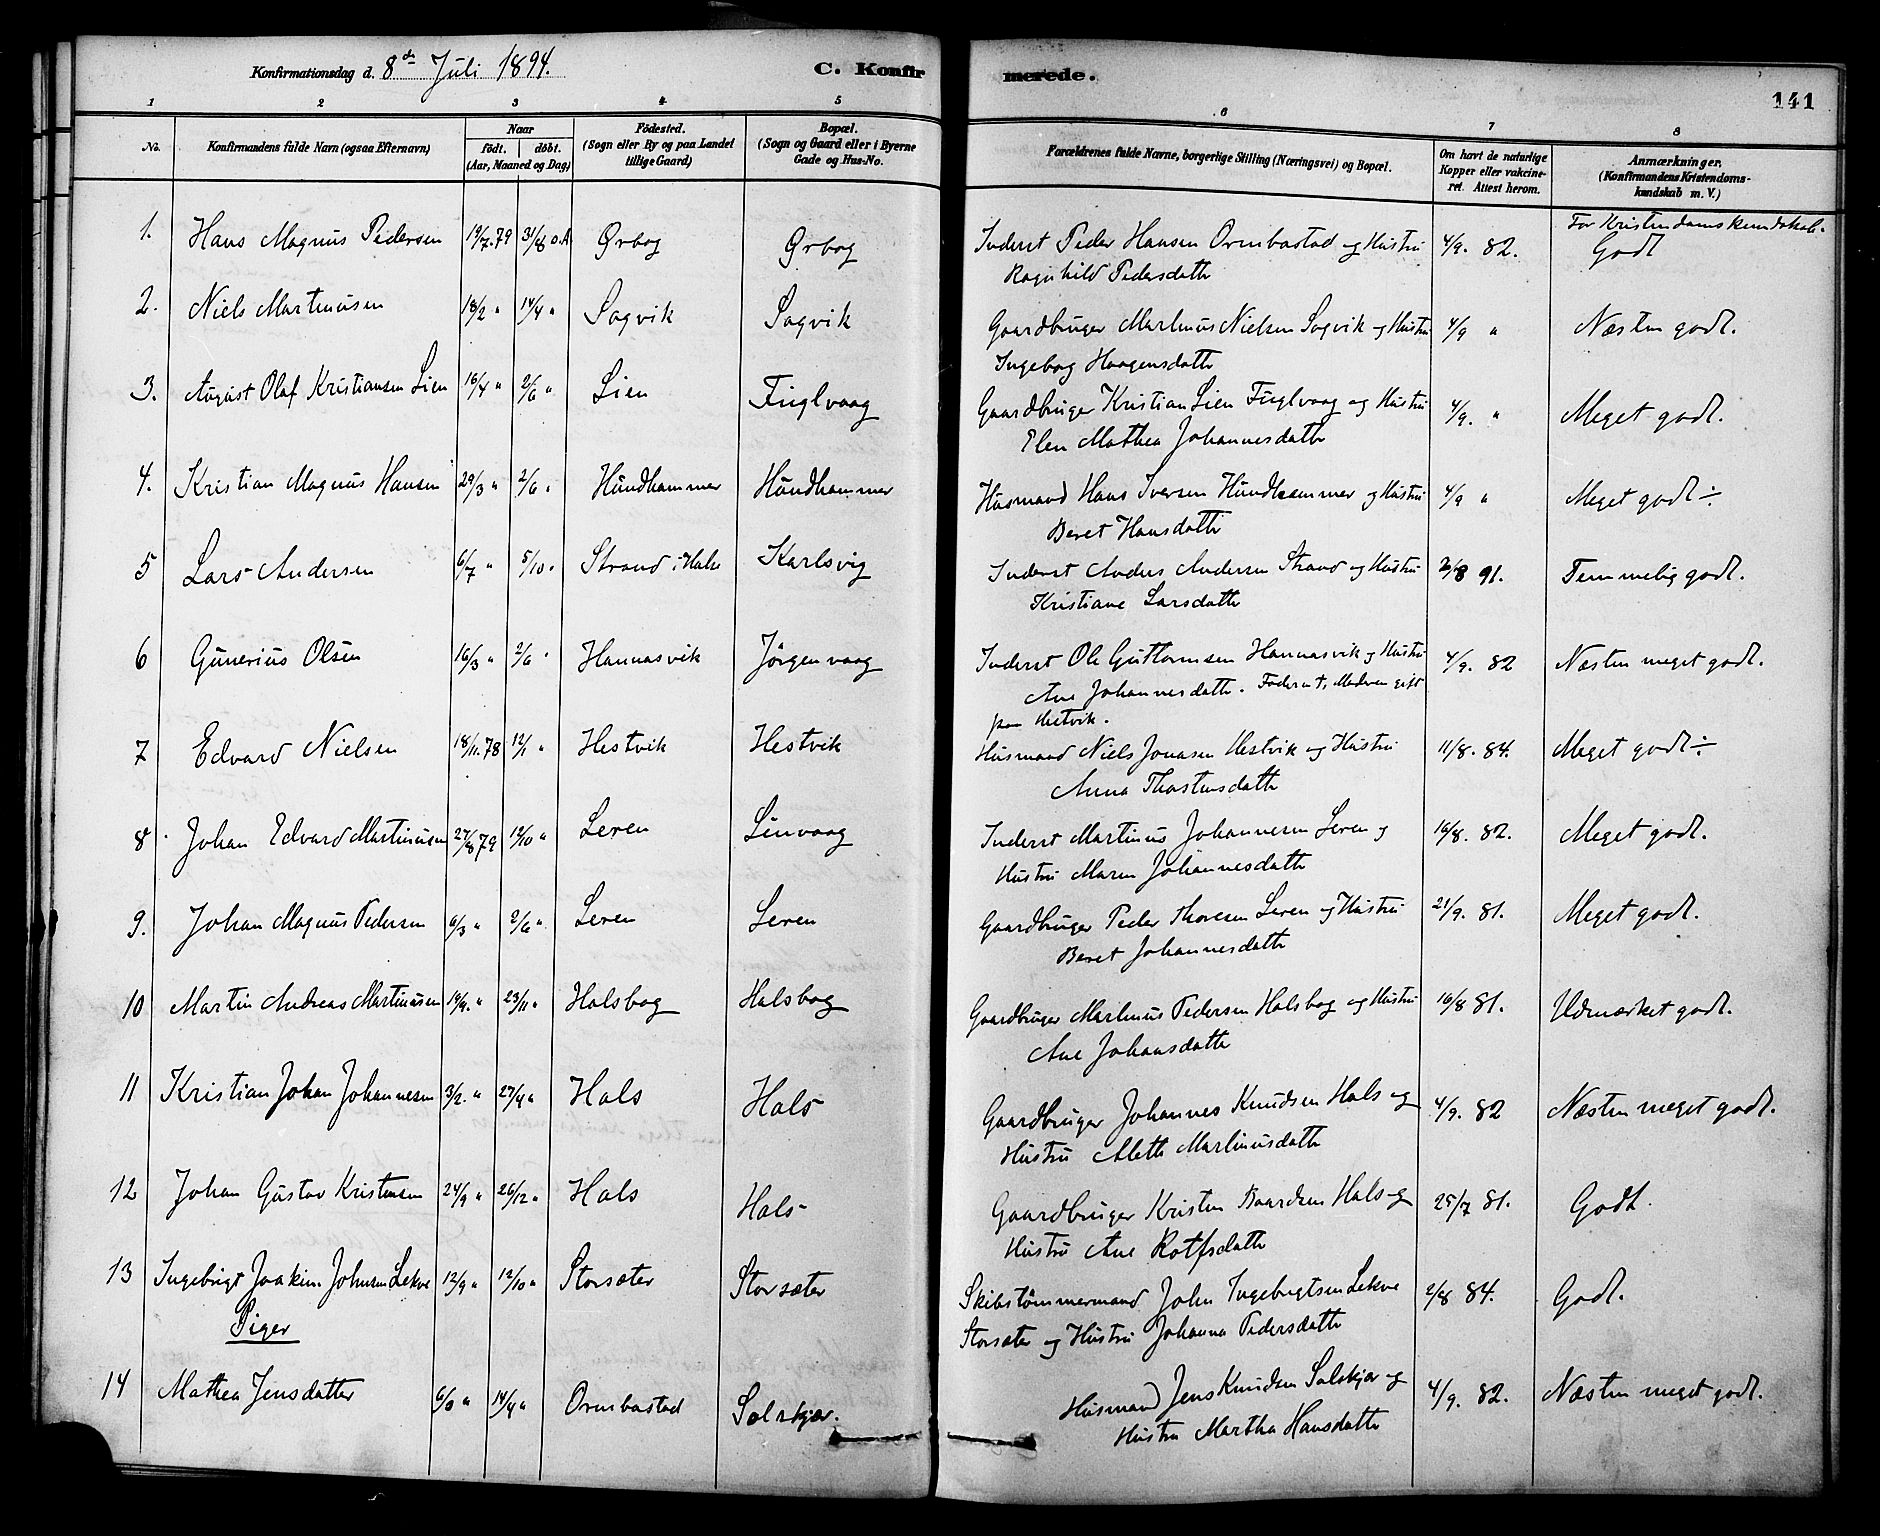 Konfirmationsdag d. 8de Juli 1894. C. Konfirmerede. 141
1 2 3 4 5 6 7 8
No. Konfirmandens fulde Navn (ogsaa Efternavn) Naar født. døbt. (Aar, Maaned og Dag) Fødested. (Sogn eller By og paa Landet tillige Gaard) Bopæl. (Sogn og Gaard eller i Byerne Gade og Hus-No. Forældrenes fulde Navne, borgerlige Stilling (Næringsvei) og Bopæl. Om havt de naturlige Kopper eller vakcineret. Attest herom. Anmærkninger. (Konfirmandens Kristendomskundskab m. V.)
For Kristendomskundskab.
1. Hans Magnus Pedersen 19/7.79 31/8 o.A Ørbog Ørbog Inderst Peder Hansen Ormbostad og Hustru 4/9. 82. Godt
Ragnhild Pedersdatter
2. Niels Martinusen 18/2 " 14/4 " Sagvik Sagvik Gaardbruger Martinus Nielsen Sagvik og Hustru 4/9 " Næsten godt.
Ingebog Haagensdatter
3. August Olaf Kristiansen Lien 16/4 " 2/6 " Lien Fuglvaag Gaardbruger Kristian Lien Fuglvaag og Hustru 4/9. " Meget godt.
Elen Mathea Johannesdatter
4. Kristian Magnus Hansen 29/3 " 2/6 " Hundhammer Hundhammer Husmand Hans Iversen Hundhammer og Hustru 4/9 " Meget godt ÷
Beret Hansdatter
5 Lars Andersen 6/7 " 5/10 " Strand i Halse Karlsvig Inderst Anders Andersen Strand og Hustru 2/8 91. Temmelig godt.
Kristiane Larsdatter
6 Gunerius Olsen 16/3 " 2/6 " Hannasvik Jørgenvaag Inderst Ole Guttormsen Hannasvik og Hustru 4/9. 82 Næsten meget godt.
Ane Johannesdatter. Faderen †, Moderen gift
paa Hestvik.
7 Edvard Nielsen 18/11.78 12/1 " Hestvik Hestvik Husmand Niels Jonasen Hestvik og Hustru 11/8. 84. Meget godt ÷
Anna Thostensdatter
8 Johan Edvard Martinusen 27/8 79 12/10 " Leren Linvaag Inderst Martinus Johannesen Leren og 16/8. 82. Meget godt.
Hustru Maren Johannesdatter
9. Johan Magnus Pedersen 6/3 " 2/6 " Leren Leren Gaardbruger Peder Thoresen Leren og Hustru 21/9. 81. Meget godt.
Beret Johannesdatter
10 Martin Andreas Martinusen 19/9. " 23/11 " Halsbog Halsbog Gaardbruger Martinus Pedersen Halsbog og Hustru 16/8 81. Udmærket godt.
Ane Johansdatter
11 Kristian Johan Johannesen 3/2. " 27/4 " Hals Hals Gaardbruger Johannes Knudsen Hals og 4/9. 82 Næsten meget godt.
Hustru Aleth Martinusdatter
12 Johan Gustav Kristensen 24/9 " 26/12 " Hals Hals Gaardbruger Kristen Baardsen Hals og 25/7 81. Godt.
Hustru Ane Rolfsdatter
13 Ingebrigt Joakim Johnsen Lekve 12/9 " 12/10 " Storsæter Storsæter Skibstømmermand John Ingebrigtsen Lekve 2/8 84. Godt.
Storsæter og Hustru Johanna Pedersdatter
Piger
14 Mathea Jensdatter 14/4 " Ormbostad Solskjær. Husmand Jens Knudsen Solskjær og 4/9. 82. Næsten meget godt.
Hustru Martha Hansdatter